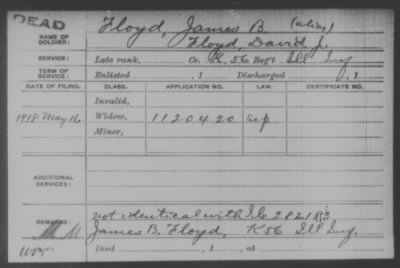 DEAD
NAME OF SOLDIER: Floyd, James B. (alias,)
Floyd, David J.
SERVICE: Late rank, Co. K, 56 Reg't Ill Inf
TERM OF SERVICE: Enlisted , 1 Discharged , 1
DATE OF FILING. CLASS. APPLICATION NO. LAW. CERTIFICATE NO.
Invalid,
1918 May 16 Widow, 1120420
Minor,
ADDITIONAL SERVICES:
REMARKS: not identical with I.C. 282183
James B. Floyd, K 56 Ill Inf.
Died , 1 , at